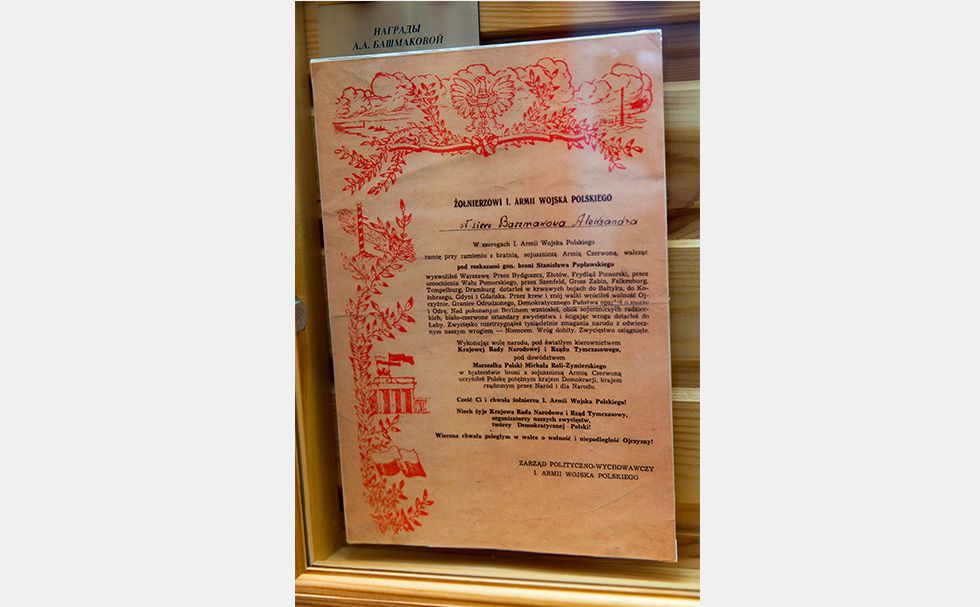 НАГРАДЫ
А.А. БАШМАКОВОЙ
ŻOŁNIERZOWI I. ARMII WOJSKA POLSKIEGO
st sierż Baszmakowa Aleksandra
W szeregach I. Armii Wojska Polskiego
ramię przy ramieniu z bratnią, sojuszniczą Armią Czerwoną, walcząc
pod rozkazami gen. broni Stanisława Popławskiego
wyzwoliłeś Warszawę. Przez Bydgoszcz, Złotów, Frydląd Pomorski, przez
umocnienia Wału Pomorskiego, przez Szenfeld, Gross Zabin, Falkenburg,
Tempelburg, Dramburg dotarłeś w krwawych bojach do Bałtyku, do Ko-
łobrzegu, Gdyni i Gdańska. Przez krew i znój walki wróciłeś wolność Oj-
czyźnie. Granice Odrodzonego, Demokratycznego Państwa oparłeś o morze
i Odrę. Nad pokonanym Berlinem wzniosłeś, obok sojuszniczych radziec-
kich, biało-czerwone sztandary zwycięstwa i ścigając wroga dotarłeś do
Łaby. Zwycięsko rozstrzygnąłeś tysiącletnie zmagania narodu z odwiecz-
nym naszym wrogiem — Niemcem. Wróg dobity. Zwycięstwo osiągnięte.
Wykonując wolę narodu, pod światłym kierownictwem
Krajowej Rady Narodowej i Rządu Tymczasowego,
pod dowództwem
Marszałka Polski Michała Roli-Żymierskiego
w braterstwie broni z sojuszniczą Armią Czerwoną
uczyniłeś Polskę potężnym krajem Demokracji, krajem
rządzonym przez Naród i dla Narodu.
Cześć Ci i chwała żołnierzu I. Armii Wojska Polskiego!
Niech żyje Krajowa Rada Narodowa i Rząd Tymczasowy,
organizatorzy naszych zwycięstw,
twórcy Demokratycznej Polski!
Wieczna chwała poległym w walce o wolność i niepodległość Ojczyzny!
ZARZĄD POLITYCZNO-WYCHOWAWCZY
I. ARMII WOJSKA POLSKIEGO